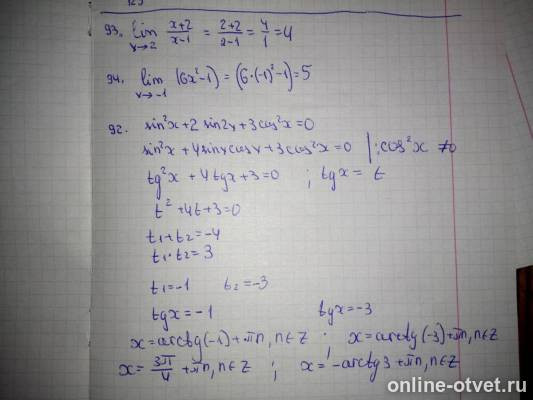 123
93. lim x→2 (x+2)/(x-1) = (2+2)/(2-1) = 4/1 = 4
94. lim x→-1 (6x²-1) = (6·(-1)²-1) = 5
92. sin²x + 2 sin2x + 3cos²x = 0
sin²x + 4sinxcosx + 3cos²x = 0 | :cos²x ≠0
tg²x + 4tgx + 3 = 0 ; tgx = t
t² + 4t + 3 = 0
t₁+t₂ = -4
t₁·t₂ = 3
t₁ = -1 t₂ = -3
tgx = -1 tgx = -3
x = arctg(-1) + πn, n∈Z ; x = arctg(-3) + πn, n∈Z
x = 3π/4 + πn, n∈Z ; x = -arctg3 + πn, n∈Z
online-otvet.ru